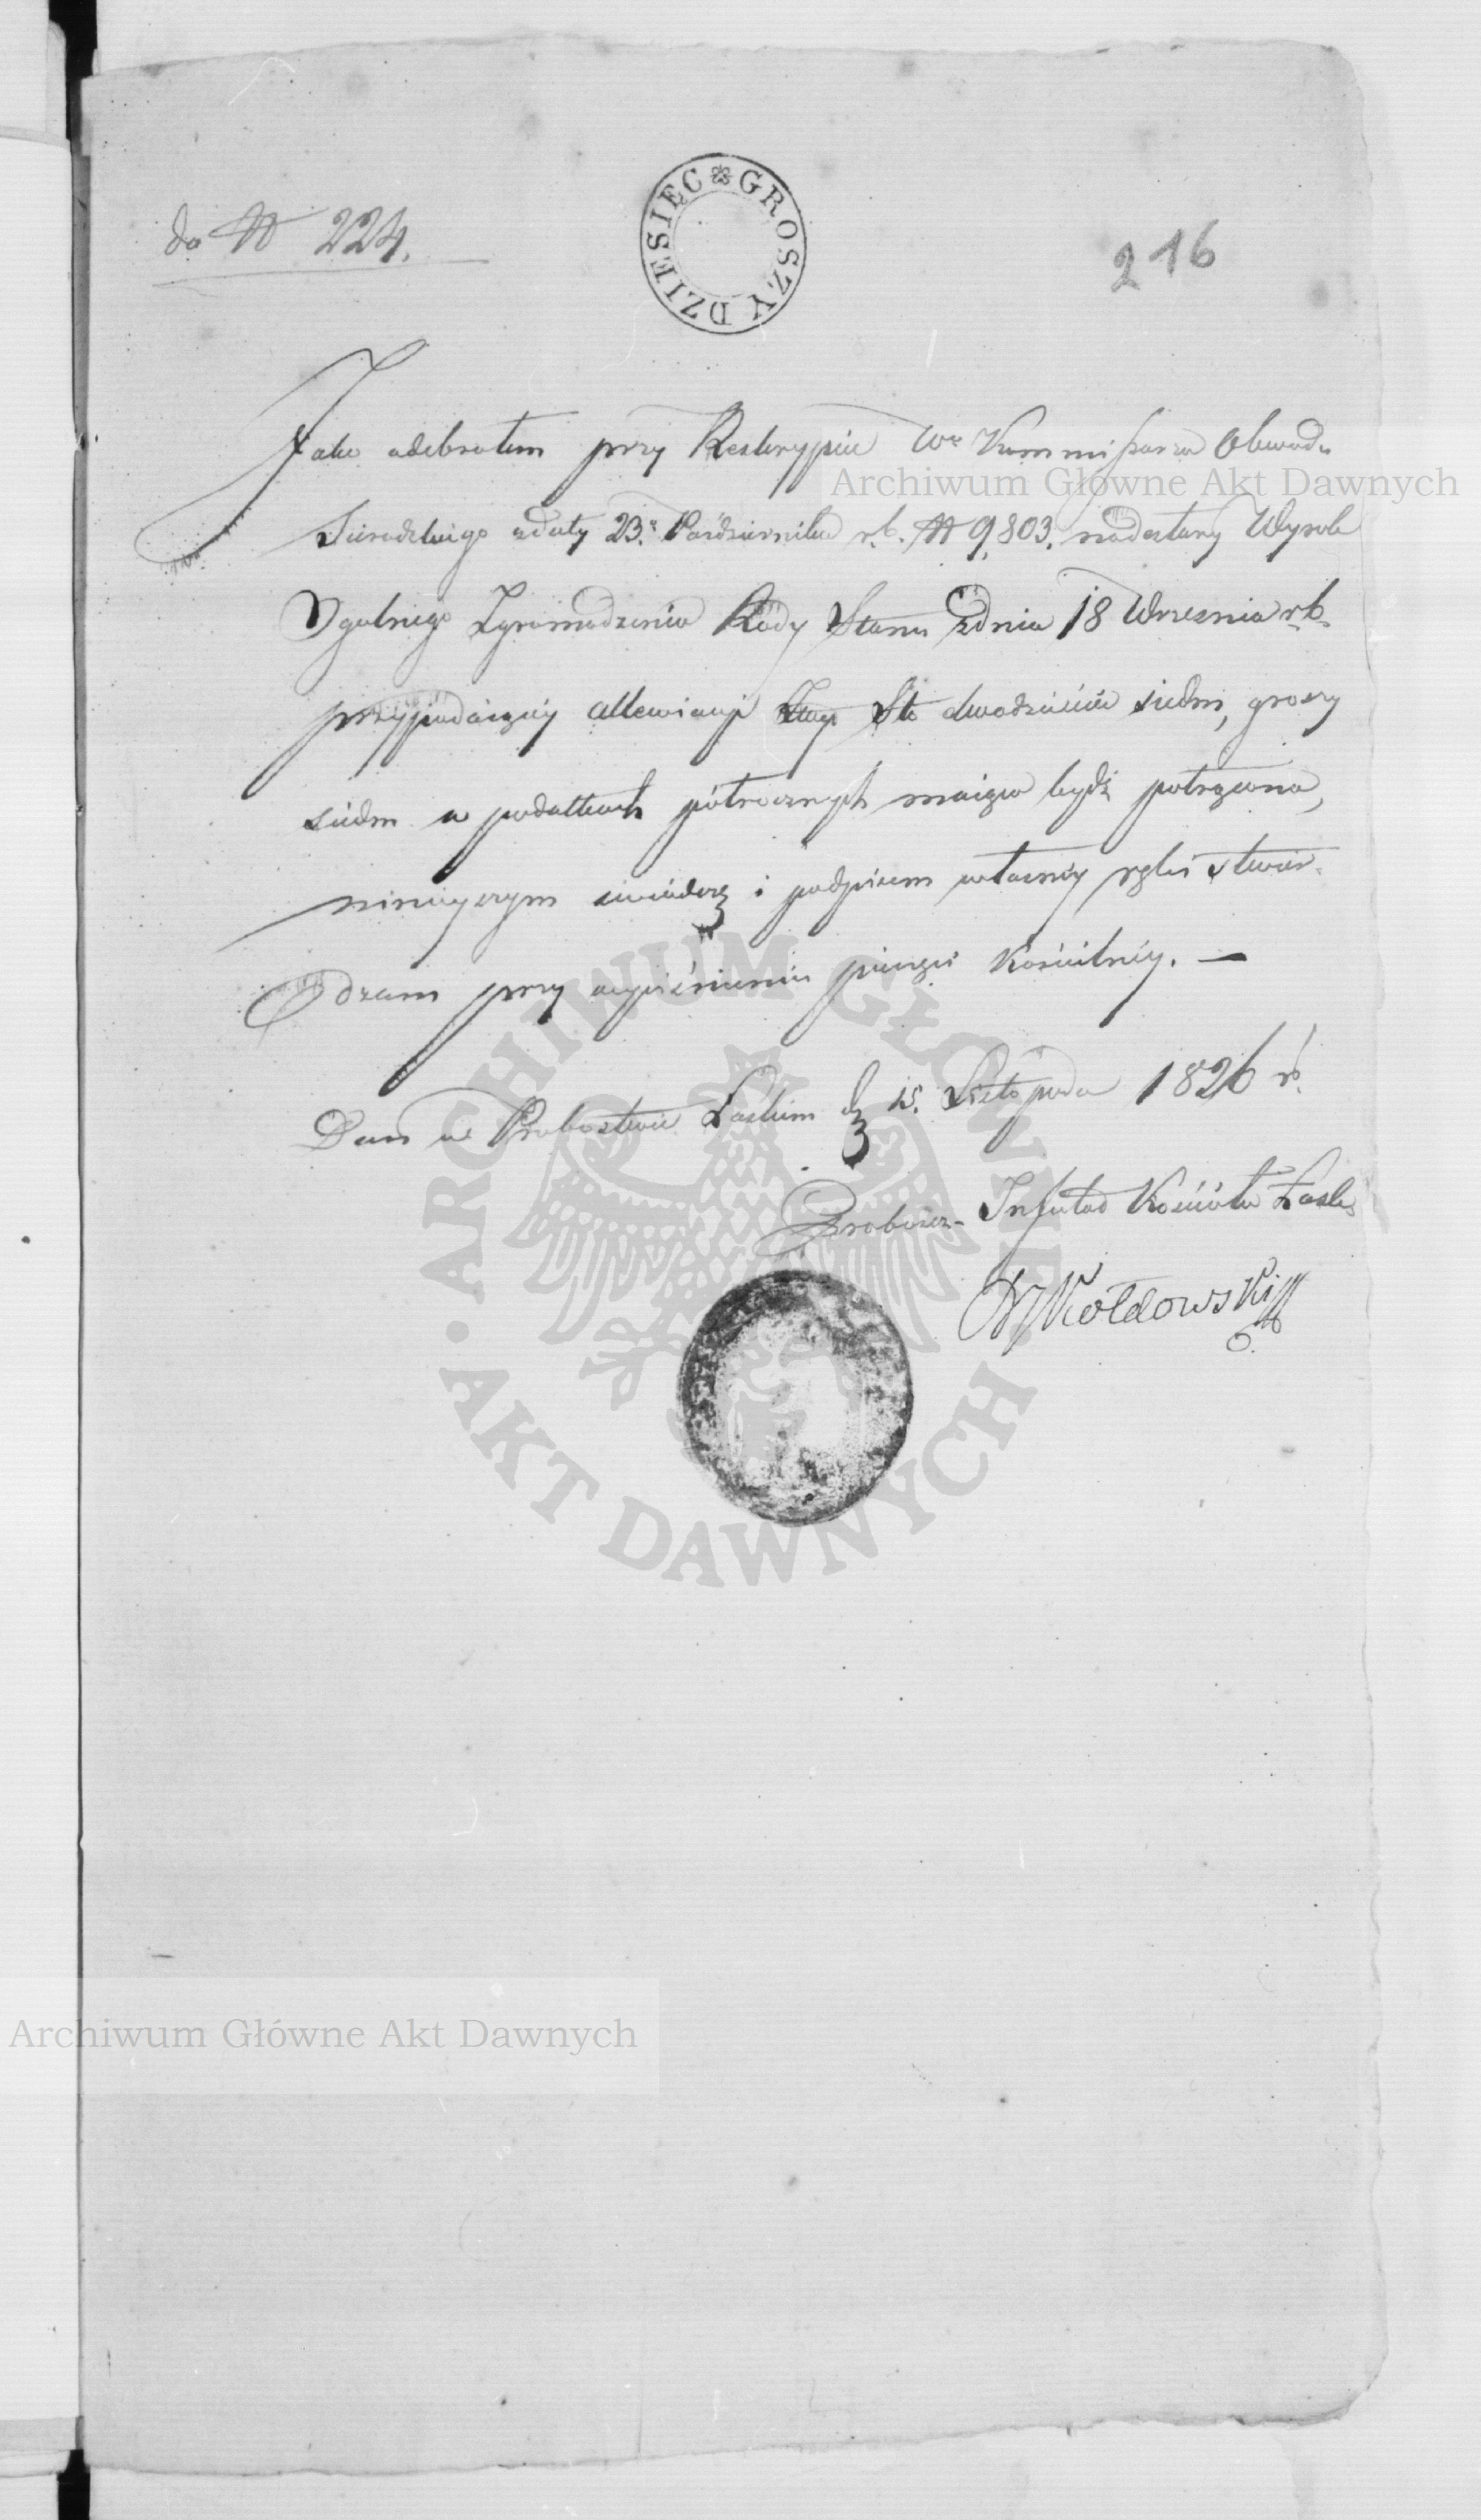 do N 224.
DZIESIĘC GROSZY
216
Jako odebrałem przy Reskrypcie Wo Kommissarza Obwodu
Sieradzkiego zdaty 23. Października r.b. N 9,803. nadesłany Wyrok
Ogolnego Zgromadzenia Rady Stanu zdnia 18 Wrzesnia r.b.
przypadaiącéy allewiacyi Sto dwadzieścia siedm, groszy
siedm w podatkach półrocznych maiąca bydź potrącona,
ninieyszym świadczę i podpisem własnéy ręki stwier-
dzam przy wyciśnieniu pieczęci Kościelnéy. —
Dan w Probostwie Łaskim d. 15. Listopada 1826 r.
Proboszcz Infuład Kościoła Łask
Kołdowski
Archiwum Główne Akt Dawnych
ARCHIWUM GŁÓWNE • AKT DAWNYCH •
Archiwum Główne Akt Dawnych